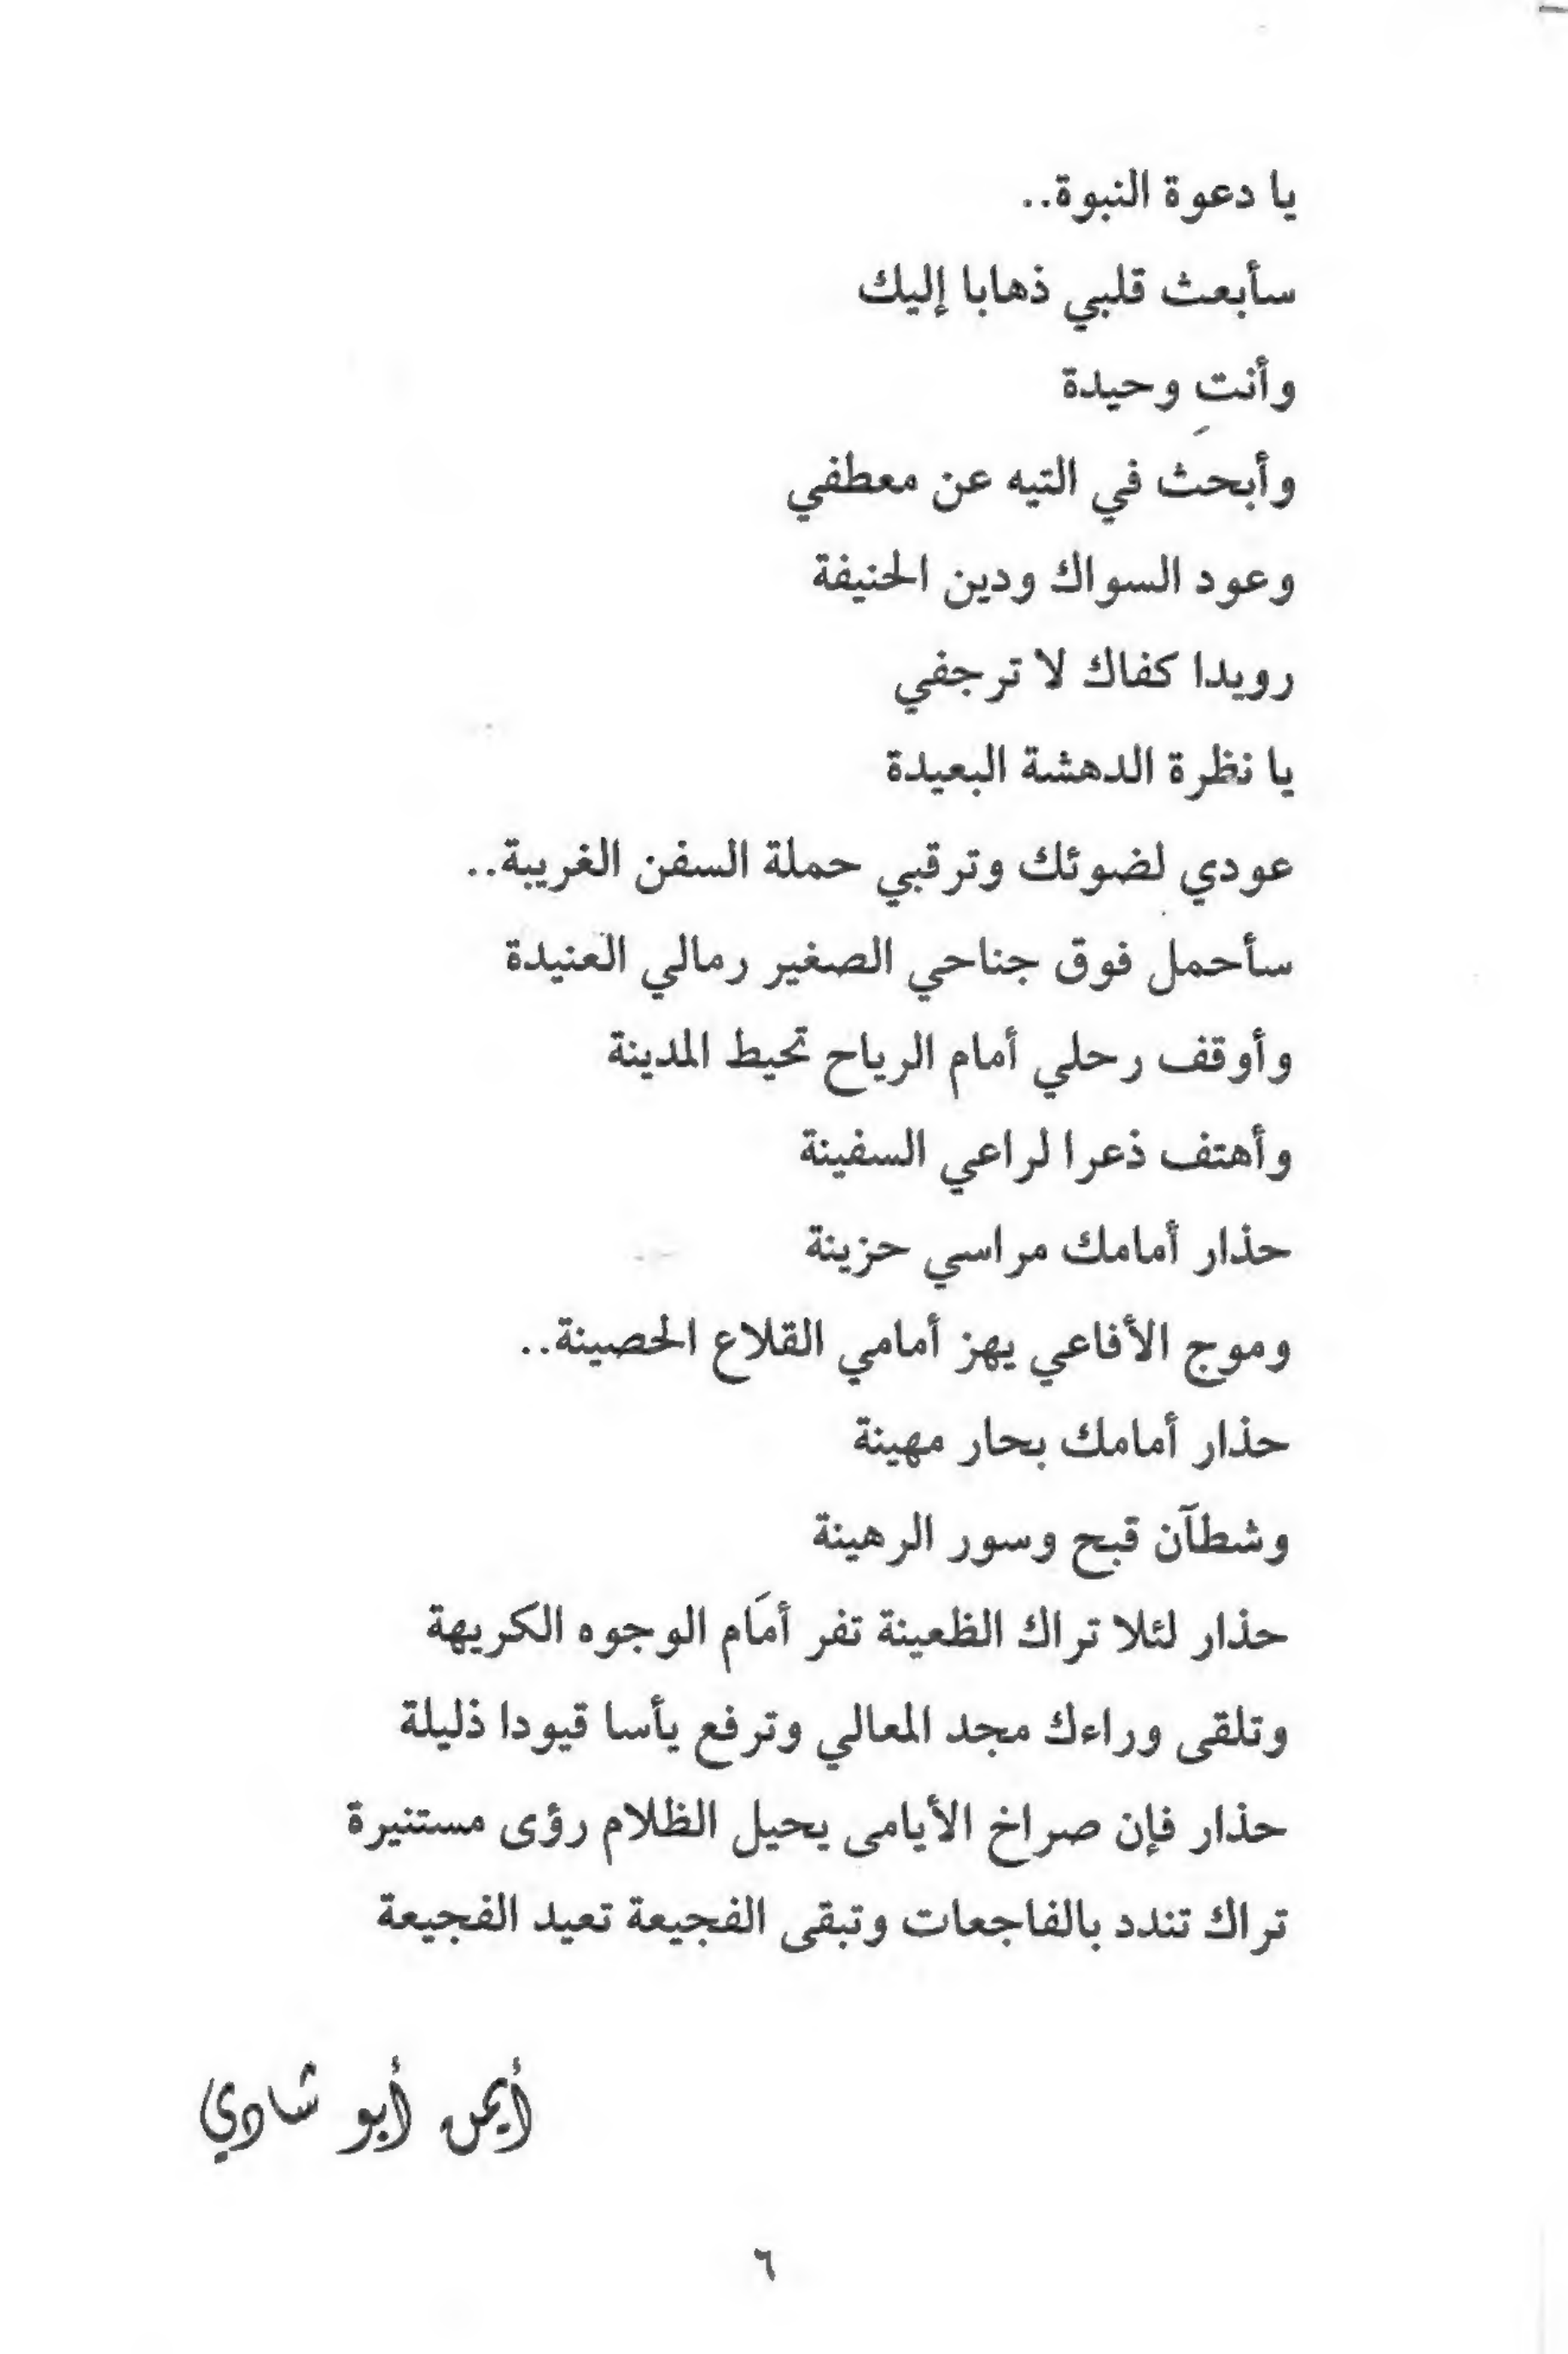 يا دعوة النبوة..
سأبعث قلبي ذهابا إليك
وأنتِ وحيدة
وأبحث في التيه عن معطفي
وعود السواك ودين الحنيفة
رويدا كفاك لا ترجفي
يا نظرة الدهشة البعيدة
عودي لضوئك وترقبي حملة السفن الغريبة..
سأحمل فوق جناحي الصغير رمالي العنيدة
وأوقف رحلي أمام الرياح تحيط المدينة
وأهتف ذعرا لراعي السفينة
حذار أمامك مراسي حزينة
وموج الأفاعي يهز أمامي القلاع الحصينة..
حذار أمامك بحار مهينة
وشطآن قبح وسور الرهينة
حذار لئلا تراك الظعينة تفر أمَام الوجوه الكريهة
وتلقى وراءك مجد المعالي وترفع يأسا قيودا ذليلة
حذار فإن صراخ الأيامى يحيل الظلام رؤى مستنيرة
تراك تندد بالفاجعات وتبقى الفجيعة تعيد الفجيعة
أيمن أبو شادي
٦